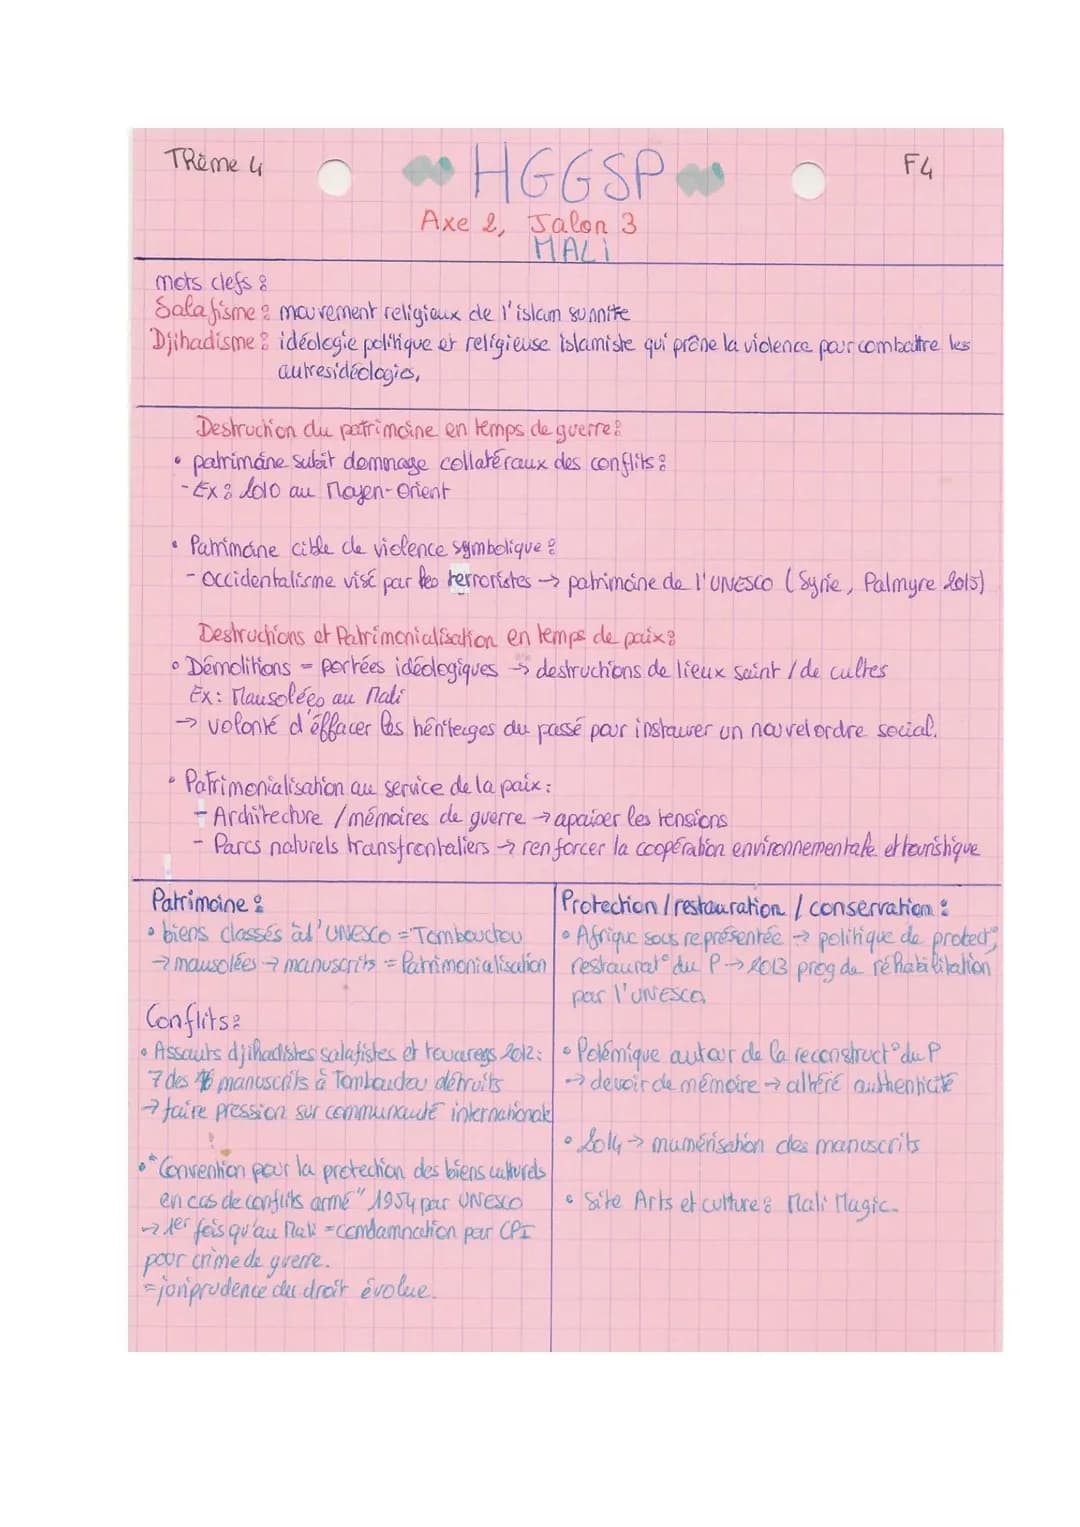 Thème 4
HGGSP
F4
Axe 2, Jalon 3
MALI
mots clefs :
Salafisme : mouvement religieux de l'islam sunnite
Djihadisme : idéologie politique et religieuse islamiste qui prône la violence pour combattre les
autres idéologies,
Destruction du patrimoine en temps de guerre :
• patrimoine subit dommage collatéraux des conflits :
- Ex : 2010 au Moyen-Orient
• Patrimoine cible de violence symbolique :
- Occidentalisme visé par les terroristes → patrimoine de l'UNESCO (Syrie, Palmyre 2015)
Destructions et Patrimonialisation en temps de paix :
• Démolitions = portées idéologiques → destructions de lieux saint / de cultes
Ex : Mausolées au Mali
→ volonté d'éffacer les héritages du passé pour instaurer un nouvel ordre social.
• Patrimonialisation au service de la paix :
- Architecture / mémoires de guerre → apaiser les tensions
- Parcs naturels transfrontaliers → renforcer la coopération environnementale et touristique
Patrimoine :
• biens classés à l'UNESCO = Tombouctou
→ mausolées → manuscrits = Patrimonialisation
Conflits :
• Assauts djihadistes salafistes et touaregs 2012 :
7 des 16 manuscrits à Tombouctou détruits
→ faire pression sur communauté internationale
• "Convention pour la protection des biens culturels
en cas de conflits armé" 1954 par UNESCO
→ 1er fois qu'au Mali = condamnation par CPI
pour crime de guerre.
= jurisprudence du droit évolue.
Protection / restauration / conservation :
• Afrique sous représentée → politique de protect°,
restaurat° du P → 2013 prog de réhabilitation
par l'UNESCO,
• Polémique autour de la reconstruct° du P
→ devoir de mémoire → altéré authenticité
• 2014 → numérisation des manuscrits
• Site Arts et culture : Mali Magic.